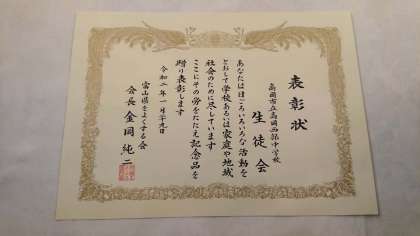 表彰状
高岡市立高岡西部中学校
生徒会
あなたは日ごろいろいろな活動を
とおして学校あるいは家庭や地域
社会のために尽しています
ここにその労をたたえ記念品を
贈り表彰します
令和二年一月二十九日
富山県をよくする会
会長 金岡純二